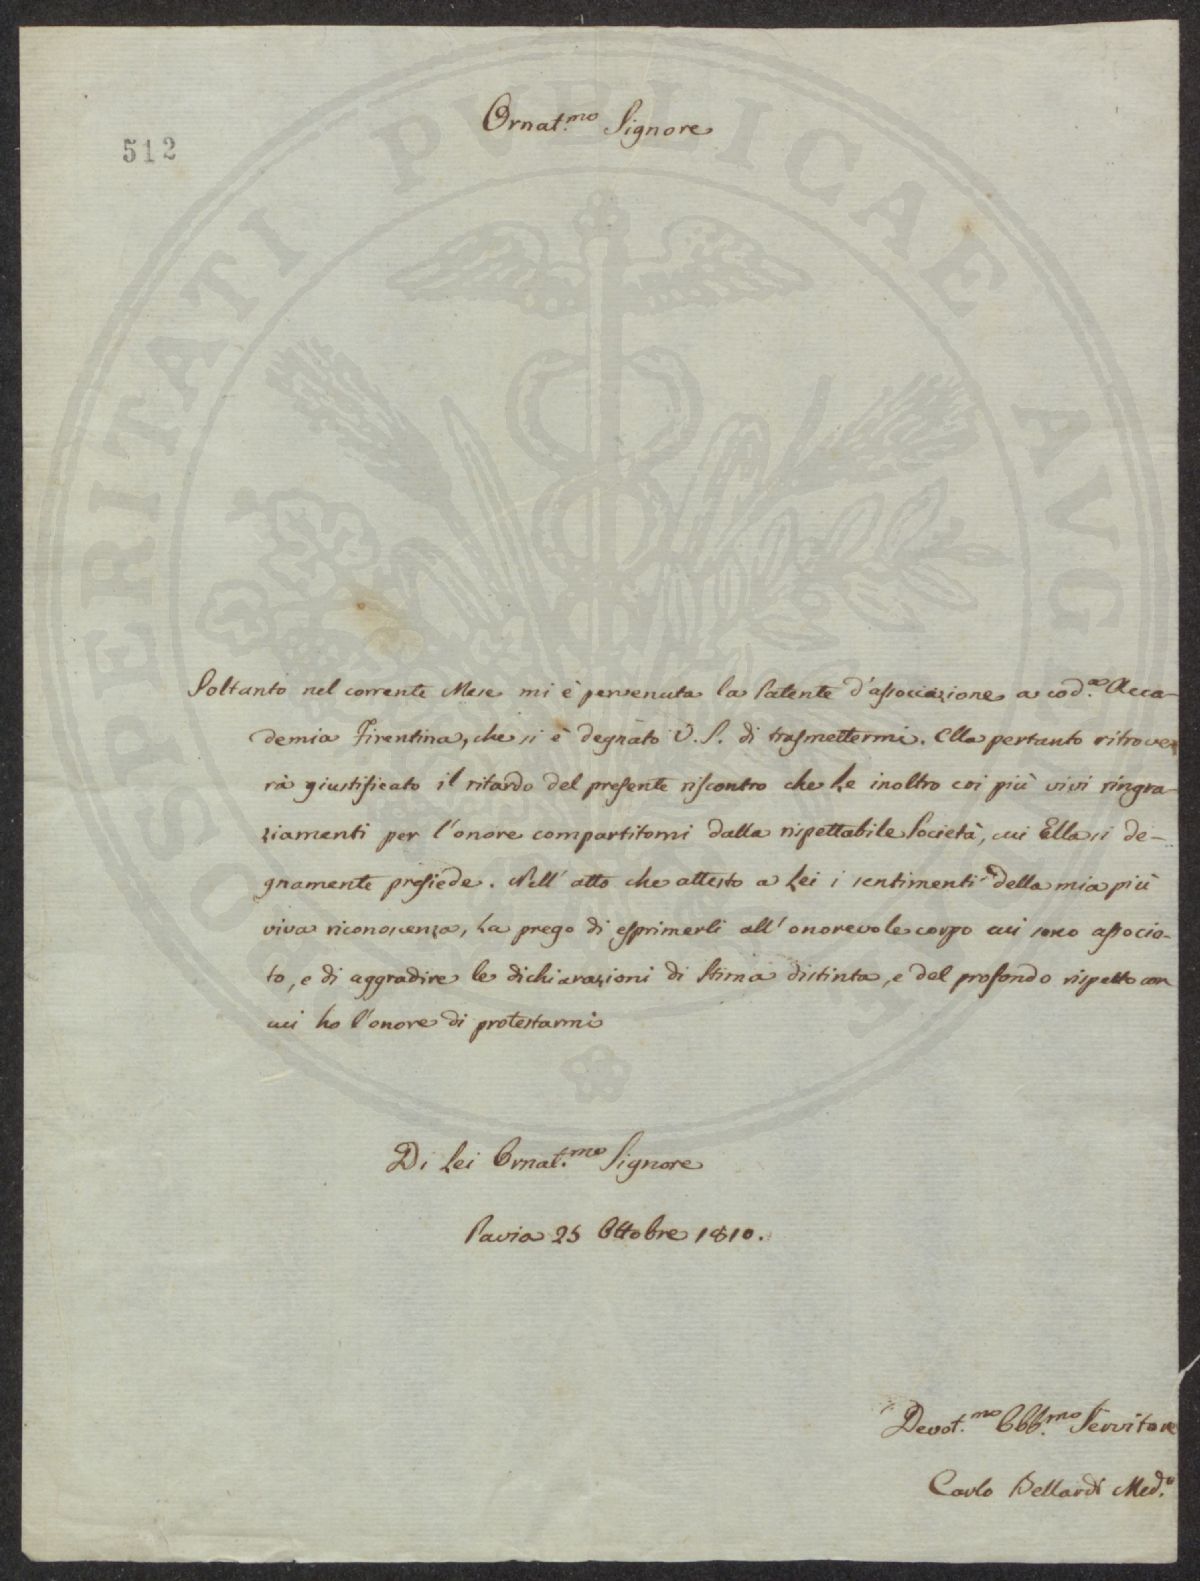 Ornat.mo Signore
512
Soltanto nel corrente Mese mi è pervenuta la Patente d'associazione a cod.a Acca-
demia Firentina, che si è degnato V. S. di trasmettermi. Ella pertanto ritrove-
rà giustificato il ritardo del presente riscontro che Le inoltro coi più vivi ringra-
ziamenti per l'onore compartitomi dalla rispettabile Società, cui Ella sì de-
gnamente presiede. Nell'atto che attesto a Lei i sentimenti della mia più
viva riconoscenza, La prego di esprimerli all'onorevole corpo cui sono associa-
to, e di aggradire le dichiarazioni di Stima distinta, e del profondo rispetto con
cui ho l'onore di protestarmi
Di Lei Ornat.mo Signore
Pavia 25 Ottobre 1810.
Devot.mo Obb.mo Servitore
Carlo Bellardi Med.o
PROSPERITATI PUBLICAE AUGENDAE